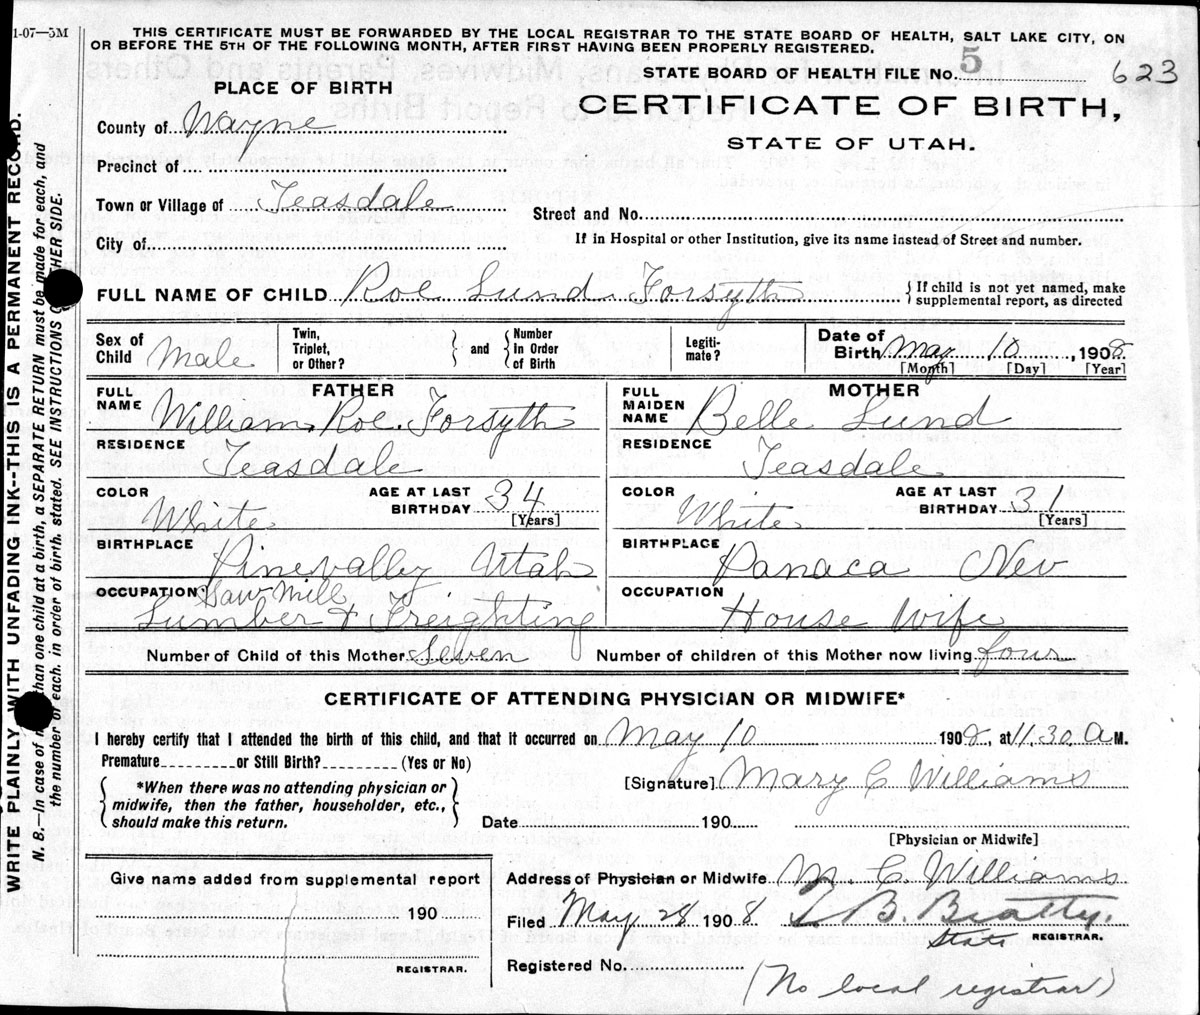 1-07—5M
THIS CERTIFICATE MUST BE FORWARDED BY THE LOCAL REGISTRAR TO THE STATE BOARD OF HEALTH, SALT LAKE CITY, ON
OR BEFORE THE 5TH OF THE FOLLOWING MONTH, AFTER FIRST HAVING BEEN PROPERLY REGISTERED.
STATE BOARD OF HEALTH FILE No. 5 623
PLACE OF BIRTH
CERTIFICATE OF BIRTH,
STATE OF UTAH.
County of Wayne
Precinct of
Town or Village of Teasdale
Street and No.
City of
If in Hospital or other Institution, give its name instead of Street and number.
FULL NAME OF CHILD Roe Lund Forsyth { If child is not yet named, make
supplemental report, as directed
Sex of Child Male Twin, Triplet, or Other? } and { Number In Order of Birth Legiti-mate? Date of Birth May 10, 1908
[Month] [Day] [Year]
FATHER
FULL NAME William Roe Forsyth
RESIDENCE Teasdale
COLOR White AGE AT LAST BIRTHDAY 34 [Years]
BIRTHPLACE Pinevalley Utah
OCCUPATION Saw Mill
Lumber & Freighting
MOTHER
FULL MAIDEN NAME Belle Lund
RESIDENCE Teasdale
COLOR White AGE AT LAST BIRTHDAY 31 [Years]
BIRTHPLACE Panaca Nev
OCCUPATION House Wife
Number of Child of this Mother Seven Number of children of this Mother now living four
CERTIFICATE OF ATTENDING PHYSICIAN OR MIDWIFE*
I hereby certify that I attended the birth of this child, and that it occurred on May 10 1908, at 11.30 A M.
Premature or Still Birth? (Yes or No)
[Signature] Mary C Williams
*When there was no attending physician or
midwife, then the father, householder, etc.,
should make this return.
Date 190
[Physician or Midwife]
Give name added from supplemental report
190
REGISTRAR.
Address of Physician or Midwife M. C. Williams
Filed May 28 1908 T. B. Beatty.
State REGISTRAR.
Registered No.
(No local registrar)
WRITE PLAINLY WITH UNFADING INK--THIS IS A PERMANENT RECORD.
N. B.—In case of more than one child at a birth, a SEPARATE RETURN must be made for each, and
the number of each, in order of birth, stated. SEE INSTRUCTIONS OTHER SIDE.